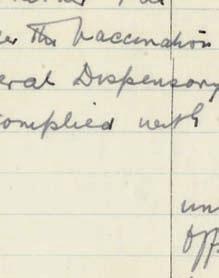 the Vaccination
eral Dispensary
complied with
un
Off